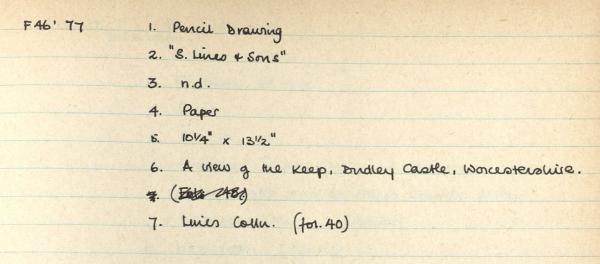 F46' 77 1. Pencil Drawing
2. "S. Lines & Sons"
3. n.d.
4. Paper
5. 10¼" x 13½"
6. A view of the Keep, Dudley Castle, Worcestershire.
7. Lines Colln. (fol. 40)